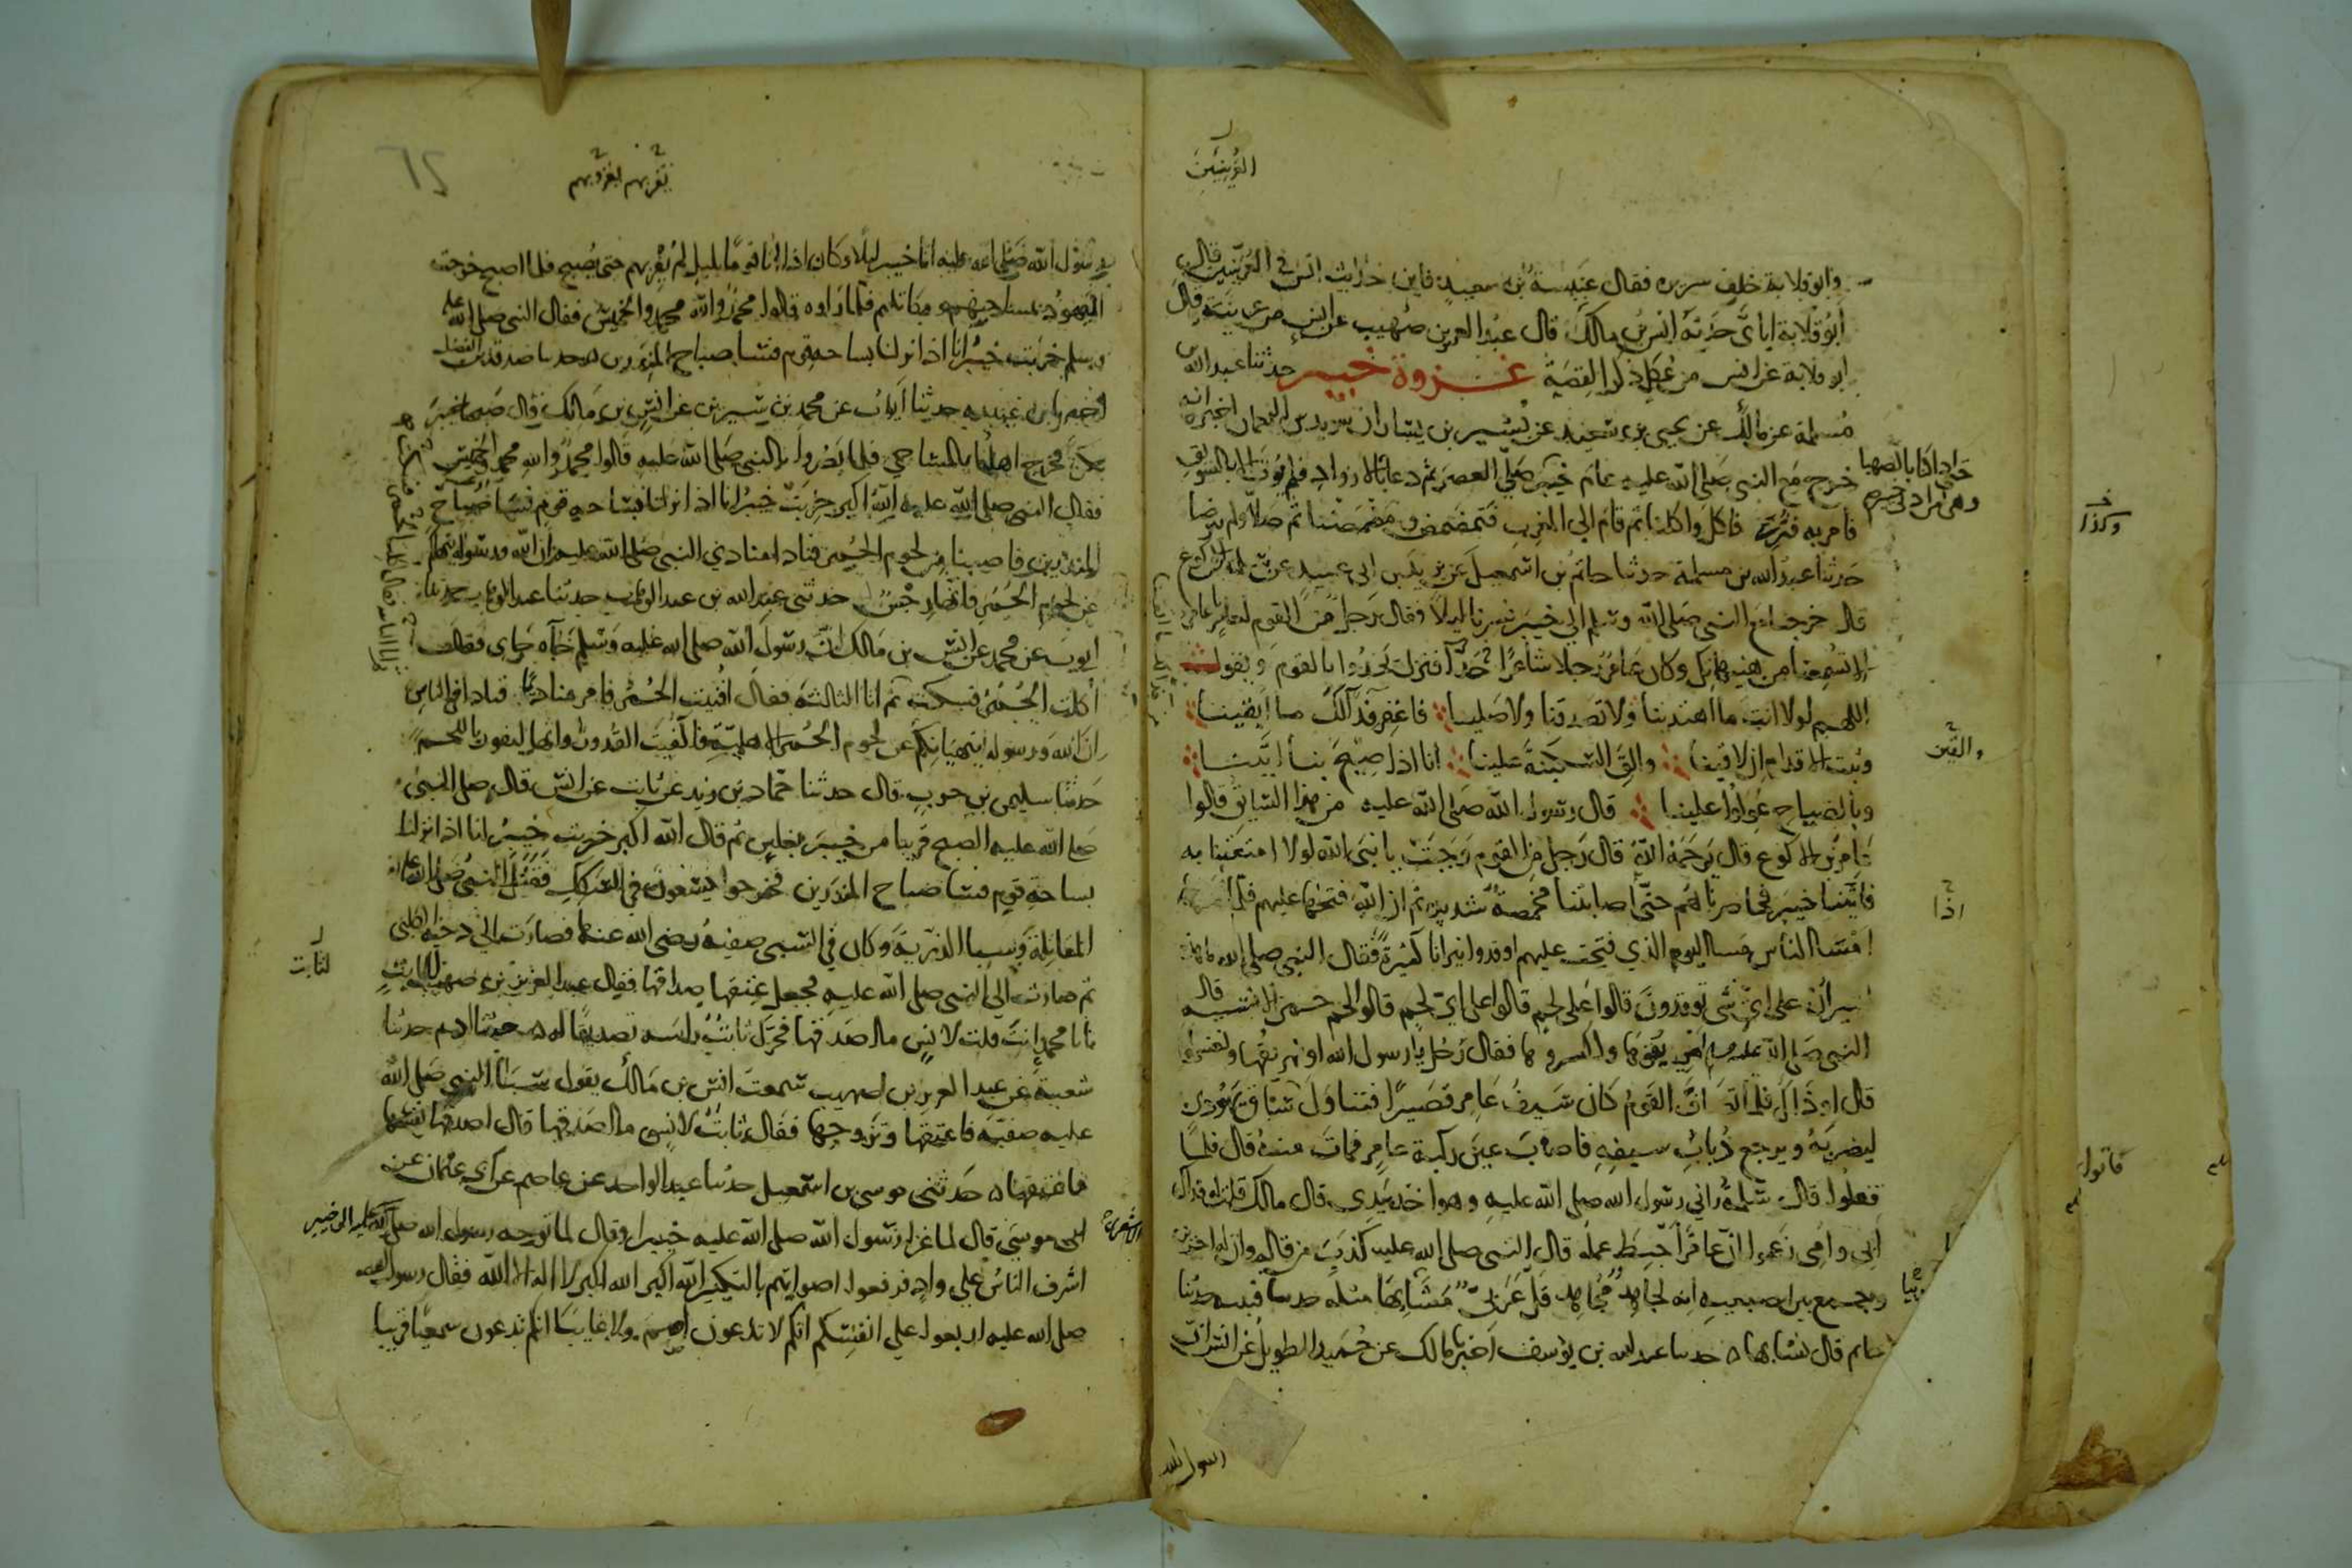 العرنيين
وابو قلابة خلف سريره فقال عنبسة بن سعيد فاين حديث انس في العرنيين قال
ابو قلابة اياى حدثه انس بن مالك قال عبد العزيز بن صهيب عن انس من عرينة وقال
ابو قلابة عن انس من عكل ذكر القصة غزوة خيبر حدثنا عبد الله بن
مسلمة عن مالك عن يحيى بن سعيد عن بشير بن يسار ان سويد بن النعمان اخبره انه
خرج مع النبي صلى الله عليه عام خيبر حتى اذا كنا بالصهبا وهى من ادنى خيبر صلى العصر ثم دعا بالازواد فلم يوت الا بالسويق
فامر به فثرى فاكل واكلنا ثم قام الى المغرب فتمضمض ومضمضنا ثم صلى ولم يتوضا
حدثنا عبد الله بن مسلمة حدثنا حاتم بن اسمعيل عن يزيد بن ابى عبيد عن سلمة بن الاكوع
قال خرجنا مع النبي صلى الله وسلم الى خيبر فسرنا ليلا فقال رجل من القوم لعامر يا عامر
الا تسمعنا من هنيهاتك وكان عامر رجلا شاعرا فنزل يحدوا بالقوم ويقول
اللهم لولا انت ما اهتدينا ولا تصدقنا ولا صلينا فاغفر فدا لك ما ابقينا
وثبت الاقدام ان لاقينا والق السكينة علينا انا اذا صيح بنا ابينا
وبالصياح عولوا علينا قال رسول الله صلى الله عليه من هذا السايق قالوا
عامر بن الاكوع قال يرحمه الله قال رجل من القوم وجبت يا نبى الله لولا امتعتنا به
فاتينا خيبر فحاصرناهم حتى اصابتنا مخمصة شديدة ثم ان الله فتحها عليهم فلما
امسا الناس مسا اليوم الذي فتحت عليهم اوقدوا نيرانا كثيرة فقال النبى صلى الله ما هذه
النيران على اى شى توقدون قالوا على لحم قالوا على اى لحم قالوا لحم حمر الانسيه قال
النبى صلى الله عليه اهريقوها واكسروها فقال رجل يا رسول الله او نهريقها ونغسلها
قال او ذاك فلما تصاف القوم كان سيف عامر قصيرا فتناول ساق يهودي
ليضربه ويرجع ذباب سيفه فاصاب عين ركبة عامر فمات منه قال فلما
قفلوا قال سلمة راني رسول الله صلى الله عليه وهو اخذ بيدى قال مالك قلت له فداك
ابى وامى زعموا ان عامرا حبط عمله قال النبى صلى الله عليه كذب من قاله وان له اجرين
وجمع بين اصبعيه انه لجاهد مجاهد قل عربى مشابها مثله حدثنا قتيبه حدثنا
حاتم قال نشا بها حدثنا عبد الله بن يوسف اخبرنا مالك عن حميد الطويل عن انس ان
رسول الله
والقين
اذا
وكذا
فاتوا
يقربهم يغزو بهم
رسول الله صلى الله عليه اتا خيبر ليلا وكان اذا اتا قوما بليل لم يغر بهم حتى يصبح فلما اصبح خرجت
اليهود بمساحيهم ومكاتلهم فلما راوه قالوا محمد والله محمد والخميس فقال النبى صلى الله عليه
وسلم خربت خيبر انا اذا نزلنا بساحة قوم فسا صباح المنذرين حدثنا صدقة بن الفضل
اخبرنا ابن عيينه حدثنا ايوب عن محمد بن سيرين عن انس بن مالك قال صبحنا خيبر
بكرة فخرج اهلها بالمساحى فلما بصروا بالنبى صلى الله عليه قالوا محمد والله محمد والخميس
فقال النبى صلى الله عليه الله اكبر خربت خيبر انا اذا نزلنا بساحة قوم فسا صباح
المنذرين فاصبنا من لحوم الحمر فنادا منادي النبى صلى الله عليه ان الله ورسوله ينهاكم
عن لحوم الحمر فانها رجس حدثنى عبد الله بن عبد الوهاب حدثنا عبد الوهاب حدثنا
ايوب عن محمد عن انس بن مالك ان رسول الله صلى الله عليه وسلم جاه جاى فقال
اكلت الحمر فسكت ثم اتا الثالثة فقال افنيت الحمر فامر مناديا فنادا في الناس
ان الله ورسوله ينهيانكم عن لحوم الحمر الاهلية فاكفيت القدور وانها لتفور باللحم
حدثنا سليمن بن حرب قال حدثنا حماد بن زيد عن ثابت عن انس قال صلى النبى
صلى الله عليه الصبح قريبا من خيبر بغلس ثم قال الله اكبر خربت خيبر انا اذا نزلنا
بساحة قوم فسا صباح المنذرين فخرجوا يسعون في السكك فقتل النبى صلى الله عليه
المقاتلة وسبا الذرية وكان في السبى صفية رضى الله عنها فصارت الى دحية الكلبى
ثم صارت الى النبى صلى الله عليه فجعل عتقها صداقها فقال عبد العزيز بن صهيب لثابت
يا با محمد انت قلت لانس ما اصدقها فحرك ثابت راسه تصديقا له حدثنا ادم حدثنا
شعبة عن عبد العزيز بن صهيب سمعت انس بن مالك يقول سبا النبى صلى الله
عليه صفيه فاعتقها وتزوجها فقال ثابت لانس ما اصدقها قال اصدقها نفسها
فاعتقها حدثنى موسى بن اسمعيل حدثنا عبد الواحد عن عاصم عن ابى عثمان عن
ابى موسى قال لما غزا رسول الله صلى الله عليه خيبر او قال لما توجه رسول الله صلى الله عليه الى خيبر
اشرف الناس على واد فرفعوا اصواتهم بالتكبير الله اكبر الله اكبر لا اله الا الله فقال رسول الله
صلى الله عليه اربعوا على انفسكم انكم لا تدعون اصم ولا غايبا انكم تدعون سميعا قريبا
لثابت
الاشعرى